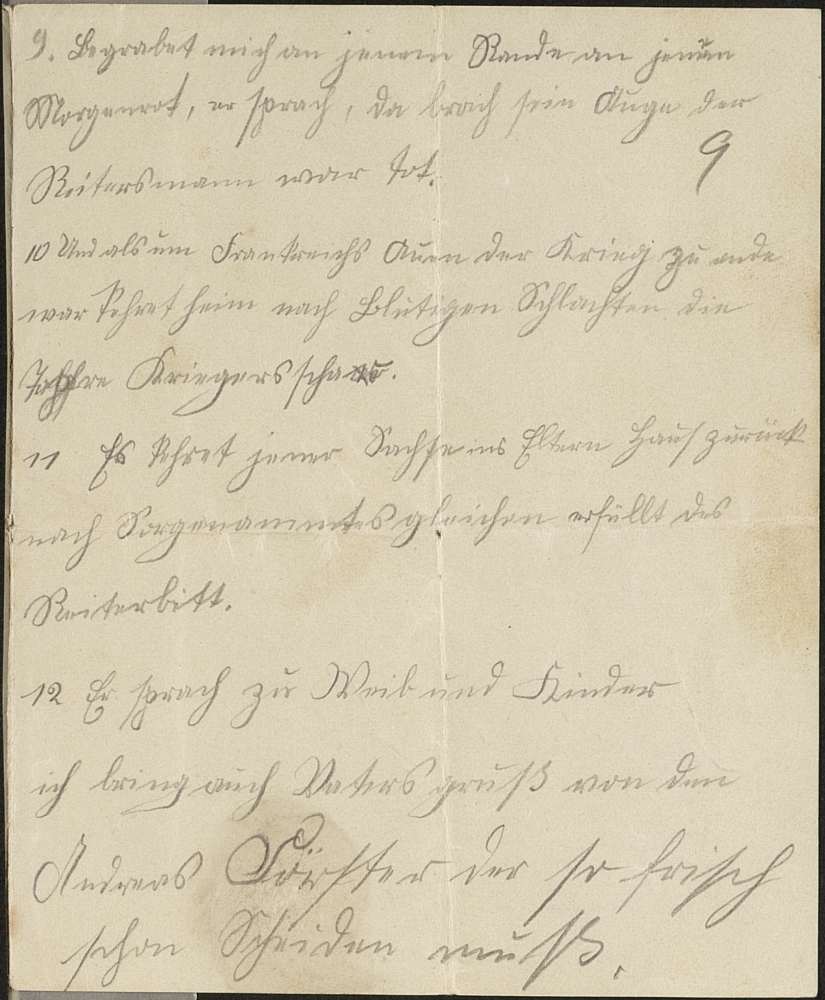 9. Begrabet mich an jenem Rande an jenem
Morgenrot, er sprach, da brach sein Auge der
9
Reitersmann war Tot.
10 Und als um Frankreichs Auen der Krieg zu ende
war kehret heim nach Blutigen Schlachten die
Kriegersschaar.
11 Es kehret jener Sachse ins Eltern Haus zurück
nach gleichen erfüllt des
Reiterbitt.
12 Er sprach zu Weib und Kinder
ich bring euch Vaters gruß von den
Andreas Förster der so frisch
schon Scheiden muß.